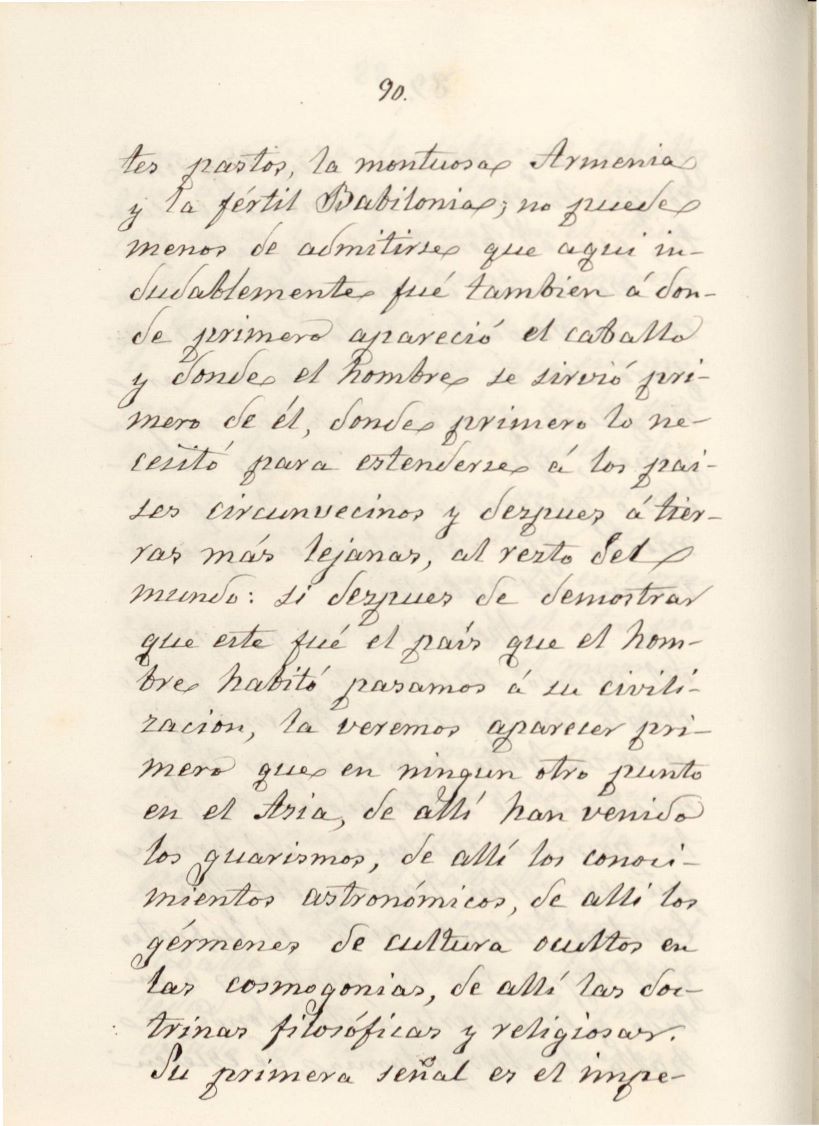 90.
tes pastos, la montuosa Armenia
y la fértil Babilonia; no puede
menos de admitirse que aqui in-
dudablemente fué tambien á don-
de primero apareció el caballo
y donde el hombre se sirvió pri-
mero de él, donde primero lo ne-
cesitó para estenderse á los pai-
ses circunvecinos y despues á tier-
ras más lejanas, al resto del
mundo: si despues de demostrar
que este fué el país que el hom-
bre habitó pasamos á su civili-
zacion, la veremos aparecer pri-
mero que en ningun otro punto
en el Asia, de allí han venido
los guarismos, de allí los conoci-
mientos astronómicos, de allí los
gérmenes de cultura ocultos en
las cosmogonias, de allí las doc-
trinas filosóficas y religiosas.
Su primera señal es el impe-